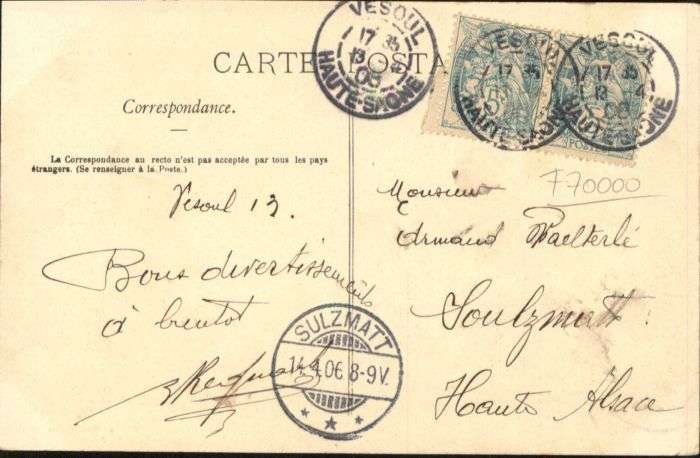 CARTE POSTA
Correspondance.
La Correspondance au recto n'est pas acceptée par tous les pays
étrangers. (Se renseigner à la Poste.)
Vesoul 13.
Bons divertissements
à bientot
VESOUL
17 35
13 4
06
HAUTE-SAONE
VESOUL
17 35
HAUTE-SAONE
VESOUL
17 35
13 4
06
HAUTE-SAONE
5
POSTE
F70000
Monsieur
Armand
Soulzmatt
Haute Alsace
SULZMATT
14.4.06 8-9V.